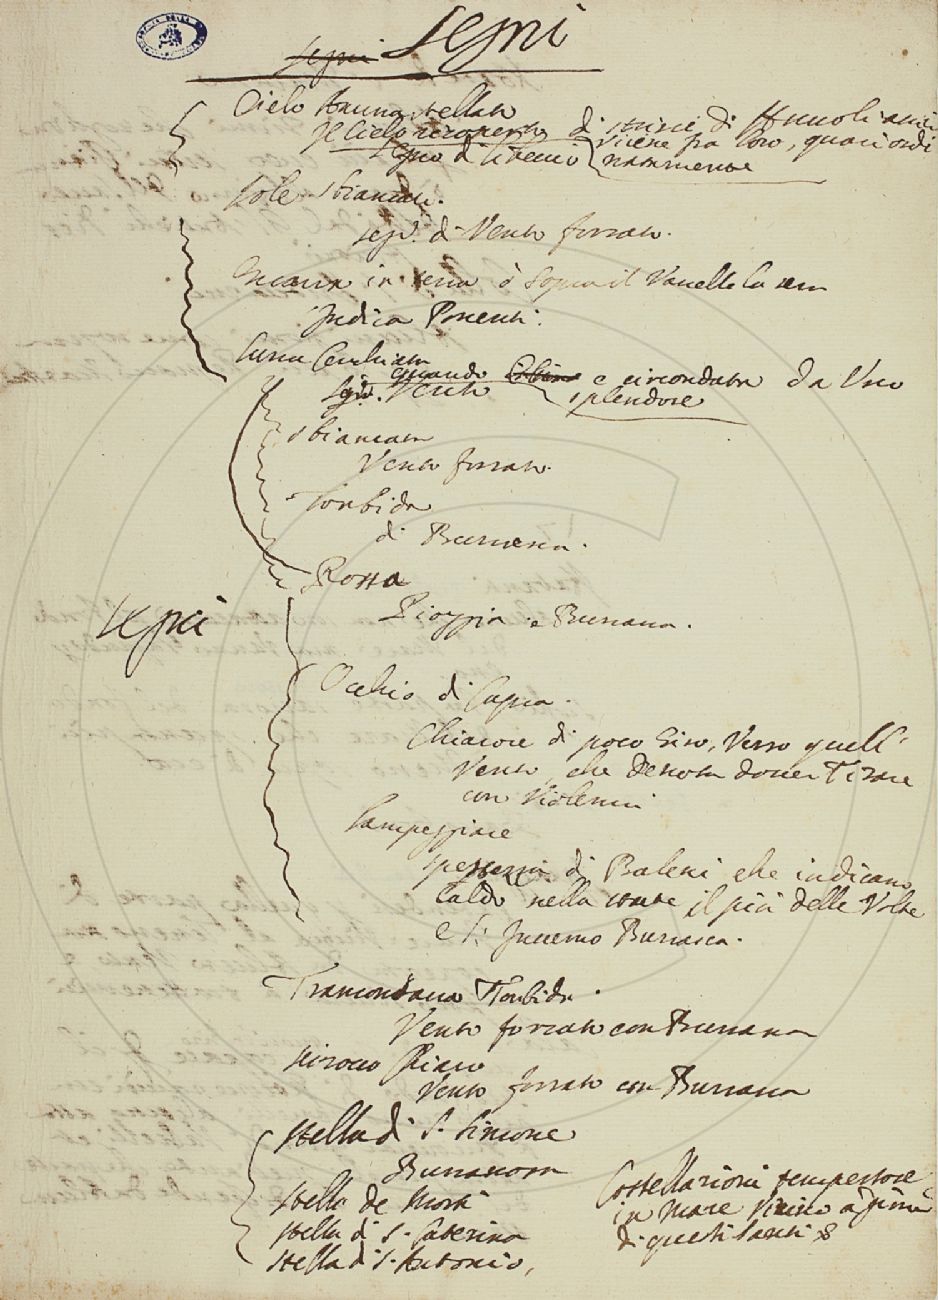 Segni Segni
Cielo stellato
Il Cielo ricoperto di striscie di Nuvoli
segno di vicine fra loro, quasi ordi
nariamente
Sole sbiancato.
segno di Vento forzato.
in terra ò sopra il Vacello la sera
Indica Ponenti.
Luna Cerchiata
quando è circondata da Uno
Segno Vento splendore
sbiancata
Vento forzato.
Torbida
di Burrasca.
Rossa
Segni
Pioggia e Burrasca.
Occhio di Capra.
Chiarore di poco Giro, Verso quell'
Vento, che denota dover Tirare
con Violenza
Lampeggiare
spessezza di Baleni che indicano
Caldo nella state il più delle Volte
e l'Inverno Burrasca.
Tramontana Torbida.
Vento forzato con Burrasca
Sirocco Chiaro
Vento forzato con Burrasca
Stella di S. Simone
Stella de Morti
Costellazioni tempestose
Stella di S. Caterina
in Mare Vicino a
Stella di S. Antonio,
di questi Santi